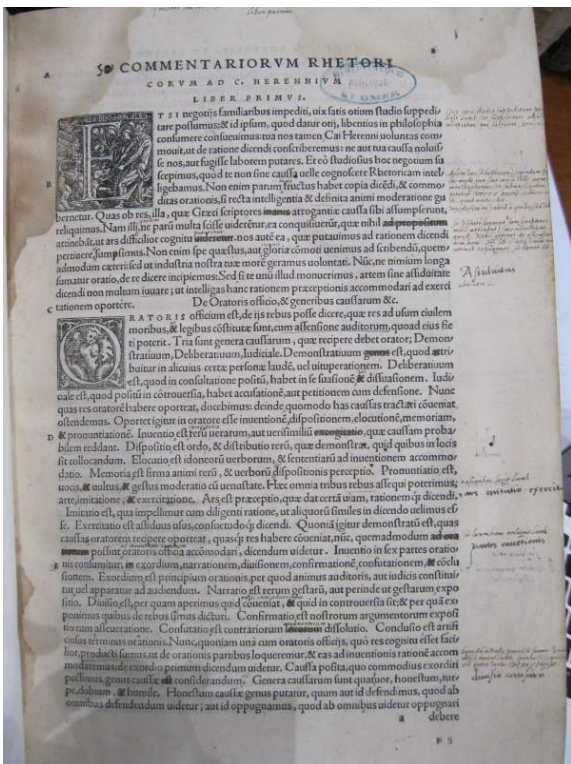 COMMENTARIORVM RHETORI
CORVM AD C. HERENNIVM
LIBER PRIMVS.
ETSI negotijs familiaribus impediti, uix satis otium studio suppedi
tare possumus: & id ipsum, quod datur otij, libentius in philosophia
consumere consueuimus: tua nos tamen Cai Herenni uoluntas com
mouit, ut de ratione dicendi conscriberemus: ne aut tua caussa noluis
se nos, aut fugisse laborem putares. Et eò studiosius hoc negotium su
scepimus, quod te non sine caussa uelle cognoscere Rhetoricam intel
ligebamus. Non enim parum fructus habet copia dicēdi, & commo
ditas orationis, si recta intelligentia & definita animi moderatione gu
bernetur. Quas ob res, illa, quæ Græci scriptores inanis arrogantiæ caussa sibi assumpserunt,
reliquimus. Nam illi, ne parū multa scisse uiderētur, ea conquisiuerūt, quæ nihil ad propositum
attinebāt, ut ars difficilior cognitu uideretur. nos autē ea, quæ putauimus ad rationem dicendi
pertinere, sumpsimus. Non enim spe quæstus, aut gloria cōmoti uenimus ad scribendū, quem/
admodum cæteri: sed ut industria nostra tuæ morē geramus uoluntati. Nūc, ne nimium longa
sumatur oratio, de re dicere incipiemus: Sed si te unū illud monuerimus, artem sine assiduitate
dicendi non multum iuuare; ut intelligas hanc rationem præceptionis accommodari ad exerci
C tationem oportere. De Oratoris officio, & generibus caussarum &c.
ORATORIS officium est, de ijs rebus posse dicere, quæ res ad usum ciuilem
moribus, & legibus cōstitutæ sunt, cum assensione auditorum, quoad eius fie
ri poterit. Tria sunt genera caussarum, quæ recipere debet orator; Demon/
stratiuum, Deliberatiuum, Iudiciale. Demonstratiuum genus est, quod attri/
buitur in alicuius certæ personæ laudē, uel uituperationem. Deliberatiuum
est, quod in consultatione positū, habet in se suasionē & dissuasionem. Iudi/
ciale est, quod positū in cōtrouersia, habet accusationē, aut petitionem cum defensione. Nunc
quas res oratorē habere oporteat, docebimus: deinde quomodo has caussas tractari cōueniat,
ostendemus. Oportet igitur in oratore esse inuentionē, dispositionem, elocutionē, memoriam,
D & pronuntiationē. Inuentio est rerū uerarum, aut uerisimiliū excogitatio, quæ caussam proba/
bilem reddant. Dispositio est ordo, & distributio rerū, quæ demonstrat, quid quibus in locis
sit collocandum. Elocutio est idoneorū uerborum, & sententiarū ad inuentionem accommo/
datio. Memoria est firma animi rerū, & uerborū dispositionis perceptio. Pronuntiatio est,
uocis, & uultus, & gestus moderatio cū uenustate. Hæc omnia tribus rebus assequi poterimus;
arte, imitatione, & exercitatione. Ars est præceptio, quæ dat certā uiam, rationem q; dicendi.
Imitatio est, qua impellimur cum diligenti ratione, ut aliquorū similes in dicendo uelimus es/
se. Exercitatio est assiduus usus, consuetudo q; dicendi. Quoniā igitur demonstratū est, quas
caussas oratorem recipere oporteat, quas q; res habere cōueniat, nūc, quemadmodum ad
possint oratoris officia accōmodari, dicendum uidetur. Inuentio in sex partes oratio
E nis consumitur, in exordium, narrationem, diuisionem, confirmationē, confutationem, & cōclu
sionem. Exordium, est principium orationis, per quod animus auditoris, aut iudicis constitui/
tur uel apparatur ad audiendum. Narratio est rerum gestarū, aut perinde ut gestarum expo
sitio. Diuisio, est, per quam aperimus quid cōueniat, & quid in controuersia sit; & per quā ex/
ponimus quibus de rebus simus dicturi. Confirmatio est nostrorum argumentorum exposi
tio cum asseueratione. Confutatio est contrariorum locorum dissolutio. Conclusio est artifi
ciosus terminus orationis. Nunc, quoniam unà cum oratoris officijs, quò res cognitu esset faci/
lior, producti sumus, ut de orationis partibus loqueremur, & eas ad inuentionis rationē accom
modaremus, de exordio primum dicendum uidetur. Caussa posita, quo commodius exordiri
possimus, genus caussæ est considerandum. Genera caussarum sunt quatuor, honestum, tur/
pe, dubium, & humile. Honestum caussæ genus putatur, quum aut id defendimus, quod ab
omnibus defendendum uidetur; aut id oppugnamus, quod ab omnibus uidetur oppugnari
a debere